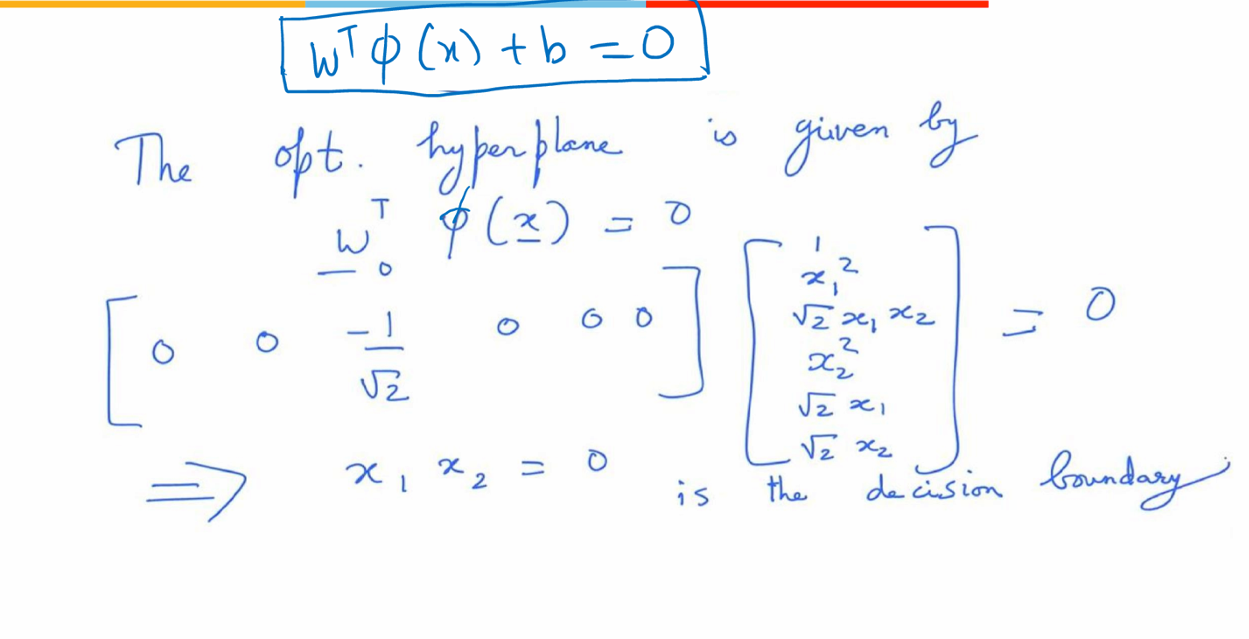 wᵀ ϕ(x) + b = 0
The opt. hyperplane is given by
w₀ᵀ ϕ(x) = 0
[ 0 0 -1/√2 0 0 0 ] [ 1 x₁² √2 x₁ x₂ x₂² √2 x₁ √2 x₂ ] = 0
⇒ x₁ x₂ = 0 is the decision boundary